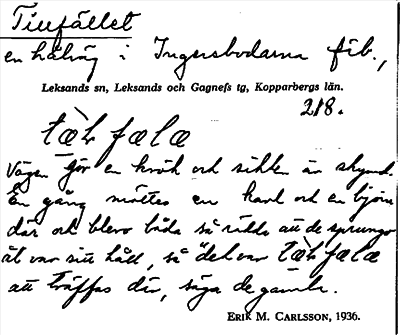 Tillfället
en hålväg i Ingersbodarna fäb.,
Leksands sn, Leksands och Gagnefs tg, Kopparbergs län.
218.
Vägen gör en krök och sikten är skymd.
En gång möttes en karl och en björn
där och blevo båda så rädda att de sprungo
åt var sitt håll, så "det var
att träffas där, säga de gamla.
ERIK M. CARLSSON, 1936.